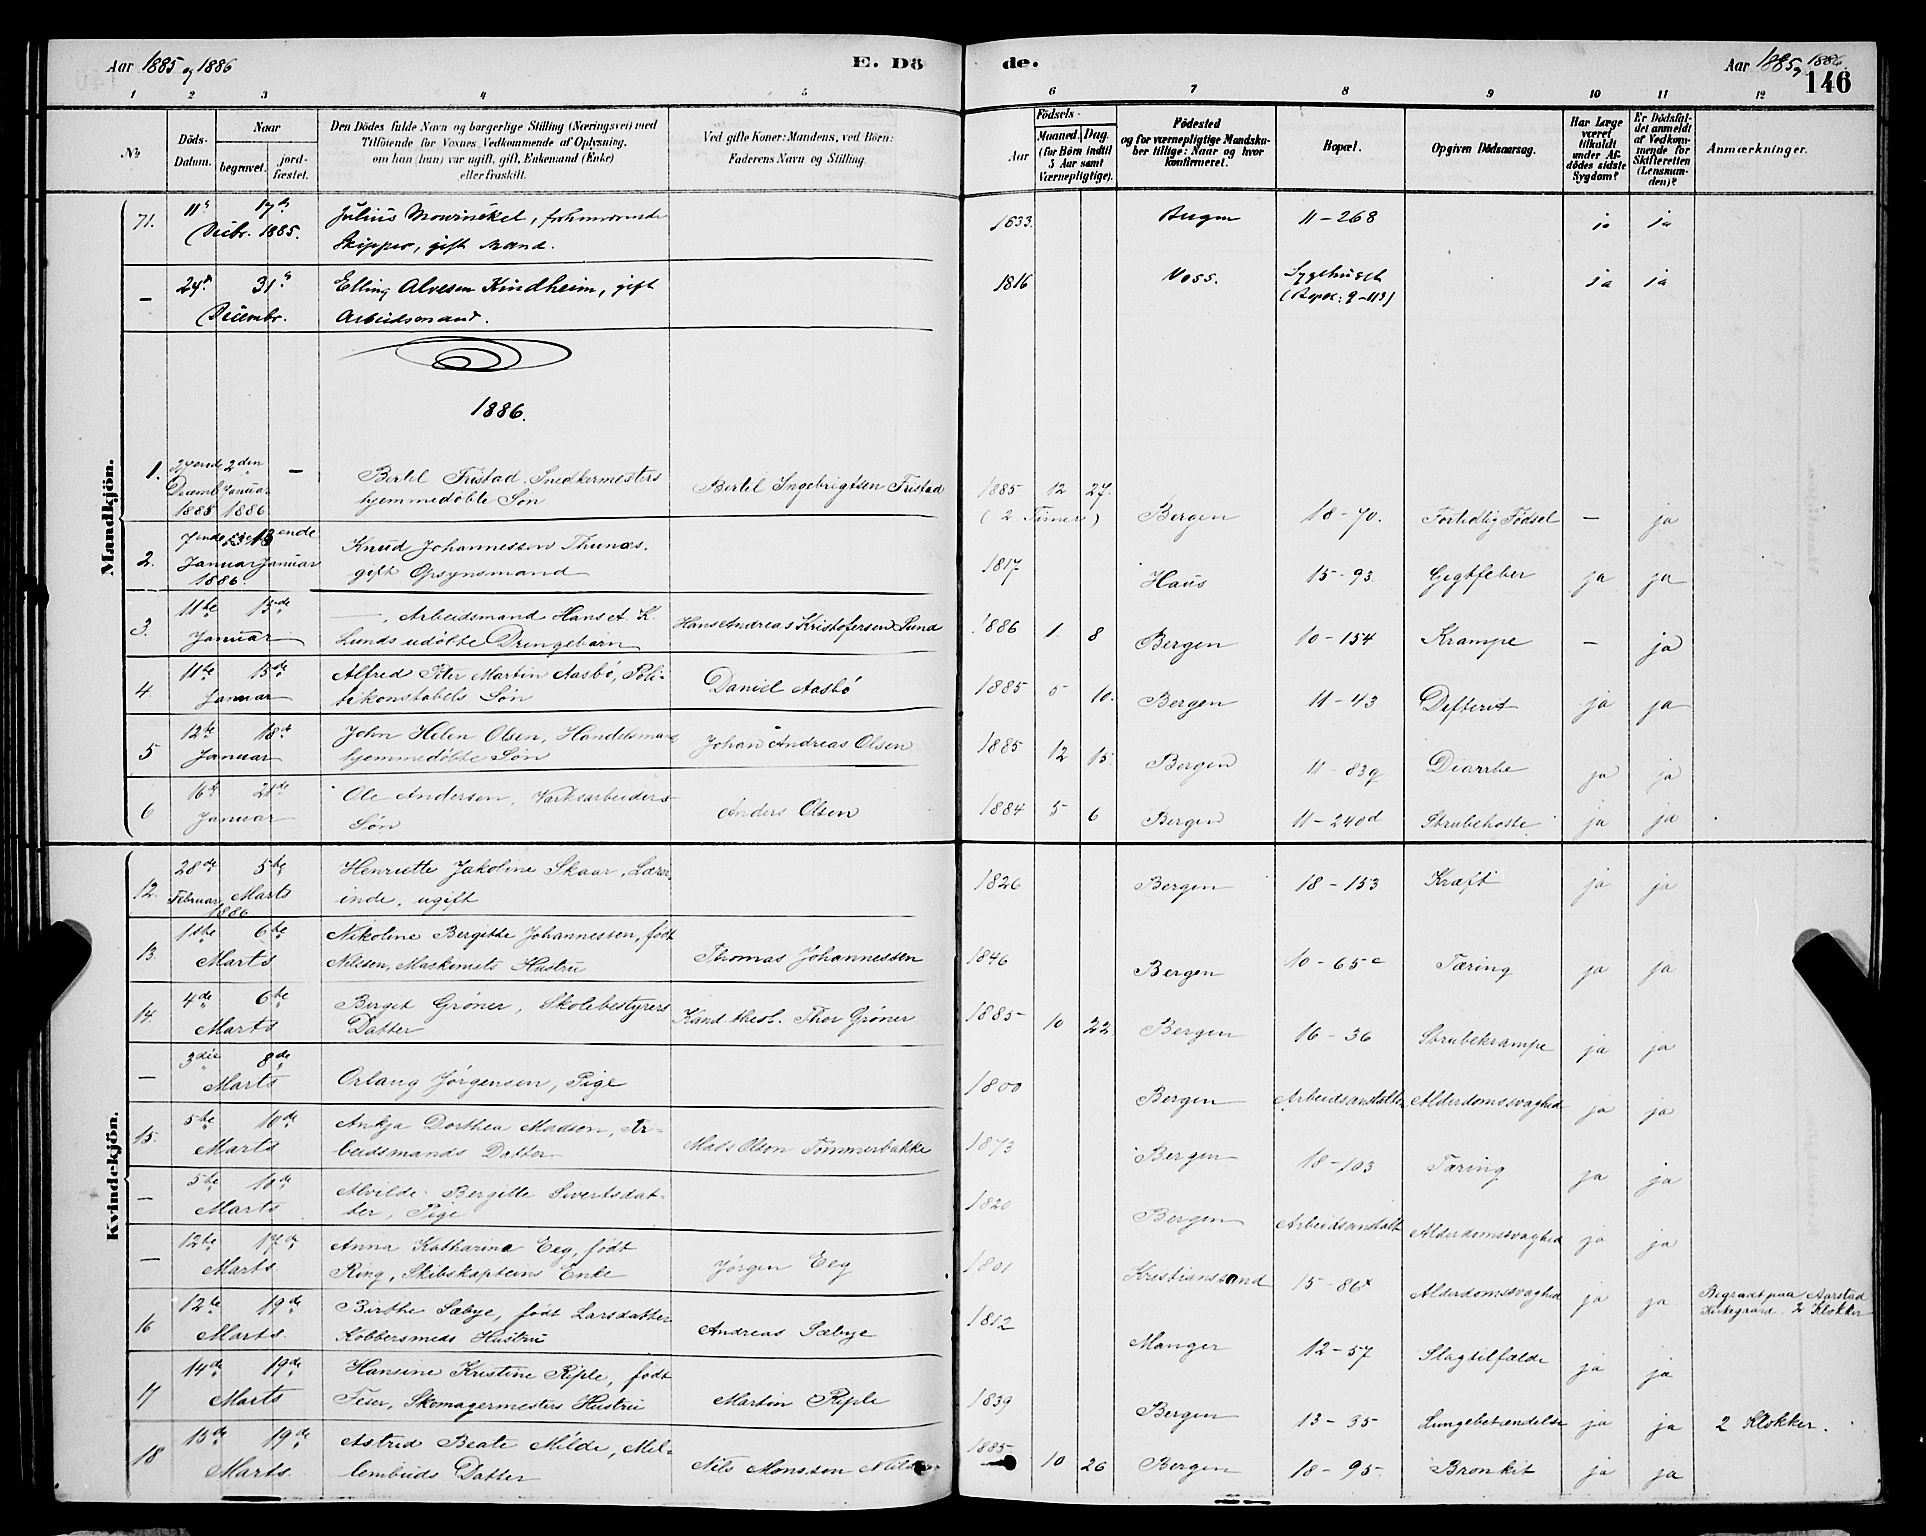 Aar 1885 og 1886
E. Dö
de.
Aar 1885, 1886.
146
1 2 3 4 5 6 7 8 9 10 11 12
No
Döds-Datum.
Naar
begravet.
jordfæstet.
Den Dödes fulde Navn og borgerlige Stilling (Næringsvei) med
Tilföiende for Voxnes Vedkommende af Oplysning,
om han (hun) var ugift, gift, Enkemand (Enke)
eller fraskilt.
Ved gifte Koner: Mandens, ved Börn:
Faderens Navn og Stilling.
Födsels-
Aar
Maaned. Dag.
(for Börn indtil
5 Aar samt
Værnepligtige).
Födested
og for værnepligtige Mandska-
ber tillige: Naar og hvor
konfirmeret.
Bopæl.
Opgiven Dödsaarsag.
Har Læge
været
tilkaldt
under Af-
dödes sidste
Sygdom?
Er Dödsfal-
det anmeldt
af Vedkom-
mende for
Skifteretten
(Lensman-
den)?
Anmærkninger.
Mandkjön.
71. 11te 17de Julius Mowinckel, forhenværende 1833. Bergen 11-268 ja ja
Decbr. 1885. Skipper, gift Mand.
- 24de 31te Elling Alvesen Kindheim, gift 1816 Voss. Sygehuset ja ja
Decembr. Arbeidsmand. (Bopæl: 9-113)
1886.
1. 27ende 2den - Bertel Fristad, Snedkermesters Bertel Ingebrigtsen Fristad 1885 12 27.
Decemb. Januar hjemmedöbte Sön (2 Timer) Bergen 18-70. Fortidlig Födsel - ja
1885 1886
2. 7ende 13ende Knud Johannessen Thunæs, 1817 Haus 15-93. Gigtfeber ja ja
Januar Januar gift Opsynsmand
1886.
3. 11te 15de -, Arbeidsmand Hans A. K. Hans Andreas Kristofersen Lund 1886 1 8 Bergen 10-154 Krampe - ja
Januar Lunds udöbte Drengebarn
4. 11te 15de Alfred Peter Martin Aasbö, Poli- Daniel Aasbö 1885 5 10. Bergen 11-43 Defterit ja ja
Januar tikonstabels Sön
5 12te 18de John Helen Olsen, Handelsmand Johan Andreas Olsen 1885 12 15 Bergen 11-83q Diarrhe ja ja
Januar hjemmedöbte Sön
6 16de 21de Ole Andersen, Værksarbeiders Anders Olsen 1884 5 6 Bergen 11-240d Strubehoste ja ja
Januar Sön
Kvindekjön.
12. 28de 5te Henriette Jakobine Skaar, Lærer- 1826 Bergen 18-153 Kræft ja ja
Februar Marts inde, ugift
1886
13. 1ste 6te Nikoline Bergitte Johannessen, födt Thomas Johannessen 1846 Bergen 10-65c Tæring ja ja
Marts Nilsen, Maskinists Hustru
14. 4de 6te Berget Gröner, Skolebestyrers Kand. theol. Thor Gröner 1885 10 22 Bergen 16-36 Strubekrampe ja ja
Marts Datter
- 3die 8de Orlaug Jörgensen, Pige 1800 Bergen Arbeidsanstalten Alderdomssvaghed ja ja
Marts
15. 5te 10de Ankja Dorthea Madsen, Ar- Mads Olsen Tömmerbakke 1873 Bergen 18-103 Tæring ja ja
Marts beidsmands Datter
- 5te 10de Alvilde Bergitte Sivertsdat- 1820 Bergen Arbeidsanstalt Alderdomssvaghed ja ja
Marts ter, Pige
- 12te 17de Anna Katharina Eeg, födt Jörgen Eeg 1801 Kristianssand 15-86x Alderdomssvaghed ja ja Begravet paa Aarstad
Marts Ring, Skibskapteins Enke Kirkegaard. 2 Klokker
16 12te 19de Birthe Sæbye, födt Larsdatter Andreas Sæbye 1812 Manger 12-57 Slagtilfælde ja ja
Marts Kobbersmeds Hustru
17 14de 19de Hansine Kristine Riple, födt Martin Riple 1839 Bergen 13-35 Lungebetændelse ja ja 2 Klokker.
Marts Feier, Skomagermesters Hustru
18 15de 19de Astrid Beate Milde, Mel- Nils Monssen Milde 1885 10 26 Bergen 18-95. Bronkit ja ja
Marts. lembuds Datter